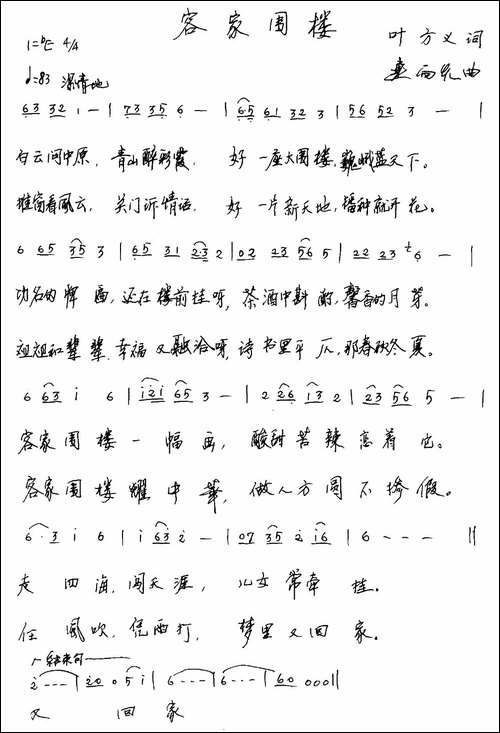 客家围楼
1=ᵇE 4/4
叶方义 词
♩=83 深情地
曲
6̲3̲ 3̲2̲ 1 - | 7̲3̲ 3̲5̲ 6 - | 6̲·̲5̲ 6̲1̲ 3̲2̲ 3 | 5̲6̲ 5̲2̲ 3 - |
白云问中原，青山醉彩霞。好一座大围楼，巍峨蓝天下。
推窗看风云，关门诉情话。好一片新天地，播种就开花。
6 6̲5̲ 3̲5̲ 3 | 6̲5̲ 3̲1̲ 2̲·̲3̲ 2 | 0̲2̲ 2̲3̲ 5̲6̲ 5 | 2̲2̲ 2̲3̲ 6 - |
功名的牌匾，还在楼前挂呀，茶酒中斟酌，馨香的月芽。
祖祖和辈辈，幸福又融洽呀，诗书里平仄，那春秋冬夏。
6 6̲3̲ i 6 | i̲2̲i̲ 6̲5̲ 3 - | 2 2̲6̲ 1̲3̲ 2 | 2̲3̲ 5̲6̲ 5 - |
客家围楼一幅画，酸甜苦辣恋着它。
客家围楼耀中华，做人方圆不掺假。
6·3̲ i 6 | i 6̲3̲ 2 - | 0̲7̲ 3̲5̲ 2 i̲6̲ | 6 - - - ‖
走四海，闯天涯，儿女常牵挂。
任风吹，凭雨打，梦里又回家。
结束句
2 - - - | 2̲0̲ 0 5 i | 6 - - - | 6 - - - | 6̲0̲ 0 0 0 ‖
又回家